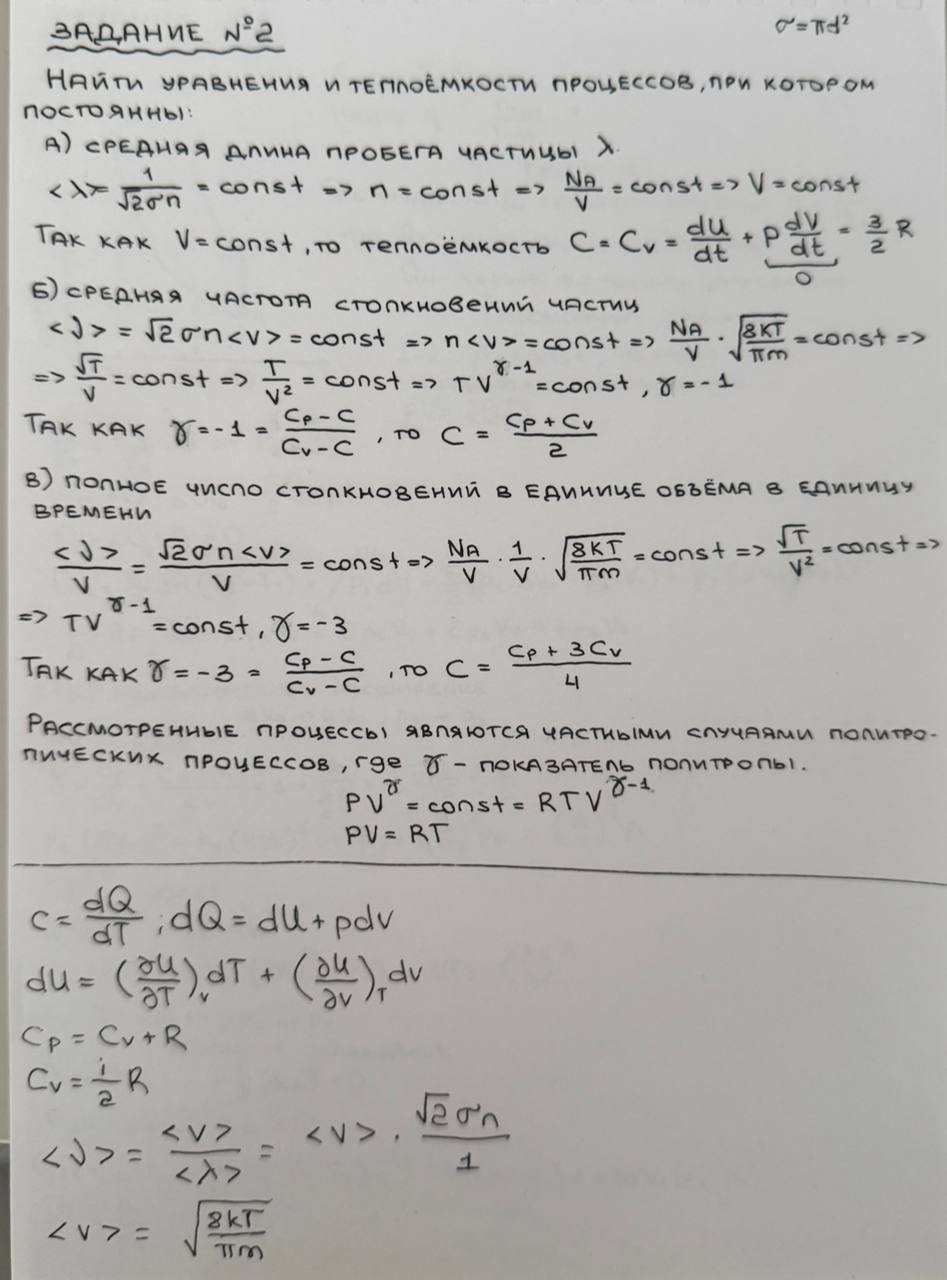 ЗАДАНИЕ №2
σ=πd²
НАЙТИ УРАВНЕНИЯ И ТЕПЛОЁМКОСТИ ПРОЦЕССОВ, ПРИ КОТОРОМ
ПОСТОЯННЫ:
А) СРЕДНЯЯ ДЛИНА ПРОБЕГА ЧАСТИЦЫ λ.
<λ>= 1/√2σn = const => n = const => NA/V = const => V = const
ТАК КАК V = const, ТО ТЕПЛОЁМКОСТЬ C = Cv = dU/dt + p dV/dt = 3/2 R
0
Б) СРЕДНЯЯ ЧАСТОТА СТОЛКНОВЕНИЙ ЧАСТИЦ
<ν> = √2σn<v> = const => n<v> = const => NA/V · √(8KT/πm) = const =>
=> √T/V = const => T/V² = const => TV^(γ-1) = const, γ = -1
ТАК КАК γ = -1 = (Cp - C)/(Cv - C), ТО C = (Cp + Cv)/2
В) ПОЛНОЕ ЧИСЛО СТОЛКНОВЕНИЙ В ЕДИНИЦЕ ОБЪЁМА В ЕДИНИЦУ
ВРЕМЕНИ
<ν>/V = √2σn<v>/V = const => NA/V · 1/V · √(8KT/πm) = const => √T/V² = const =>
=> TV^(γ-1) = const, γ = -3
ТАК КАК γ = -3 = (Cp - C)/(Cv - C), ТО C = (Cp + 3Cv)/4
РАССМОТРЕННЫЕ ПРОЦЕССЫ ЯВЛЯЮТСЯ ЧАСТНЫМИ СЛУЧАЯМИ ПОЛИТРО-
ПИЧЕСКИХ ПРОЦЕССОВ, где γ - ПОКАЗАТЕЛЬ ПОЛИТРОПЫ.
PV^γ = const = RTV^(γ-1)
PV = RT
C = dQ/dT ; dQ = dU + pdv
dU = (∂U/∂T)v dT + (∂U/∂v)T dv
Cp = Cv + R
Cv = i/2 R
<ν> = <v>/<λ> = <v> · √2σn/1
<v> = √(8kT/πm)